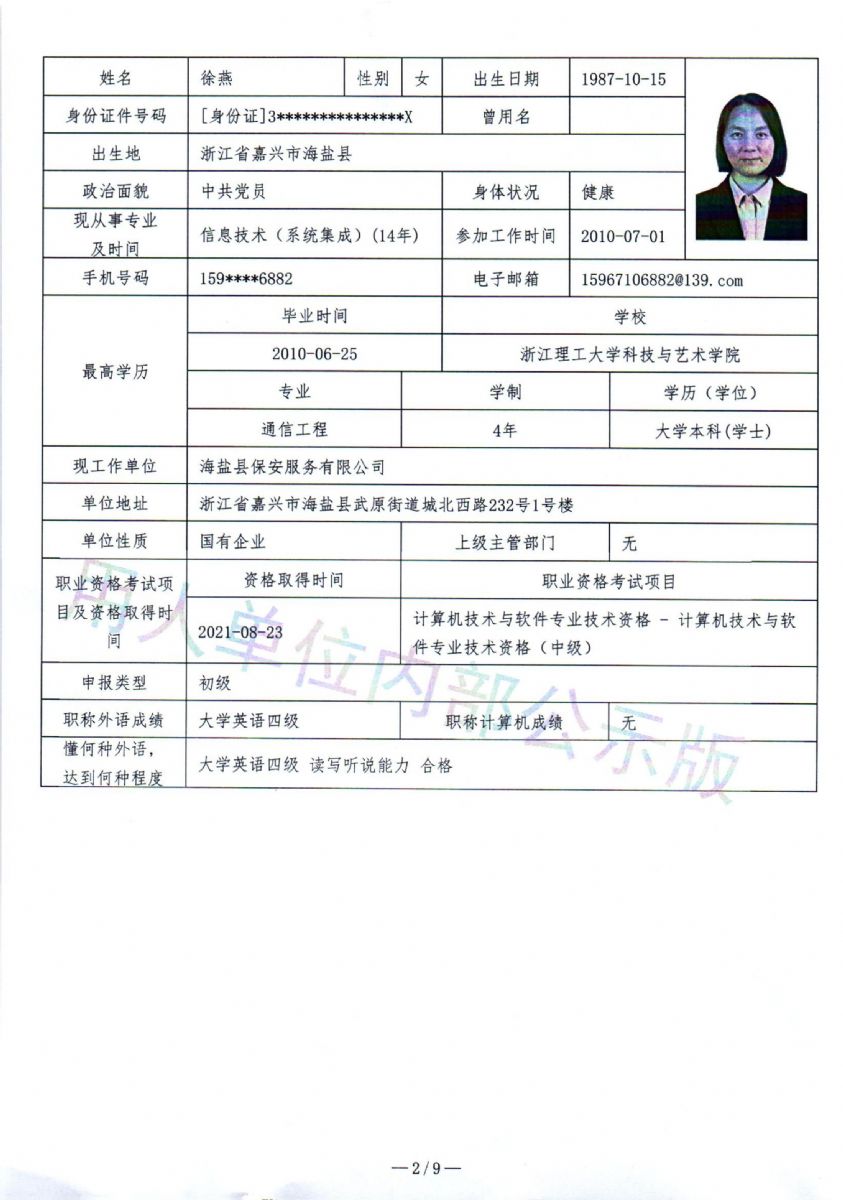 姓名 徐燕 性别 女 出生日期 1987-10-15
身份证件号码 [身份证]3***************X 曾用名
出生地 浙江省嘉兴市海盐县
政治面貌 中共党员 身体状况 健康
现从事专业
及时间 信息技术（系统集成）(14年) 参加工作时间 2010-07-01
手机号码 159****6882 电子邮箱 15967106882@139.com
最高学历
毕业时间 学校
2010-06-25 浙江理工大学科技与艺术学院
专业 学制 学历（学位）
通信工程 4年 大学本科(学士)
现工作单位 海盐县保安服务有限公司
单位地址 浙江省嘉兴市海盐县武原街道城北西路232号1号楼
单位性质 国有企业 上级主管部门 无
职业资格考试项
目及资格取得时
间
资格取得时间 职业资格考试项目
2021-08-23 计算机技术与软件专业技术资格 - 计算机技术与软
件专业技术资格（中级）
申报类型 初级
职称外语成绩 大学英语四级 职称计算机成绩 无
懂何种外语，
达到何种程度 大学英语四级 读写听说能力 合格
用人单位内部公示版
—2/9—